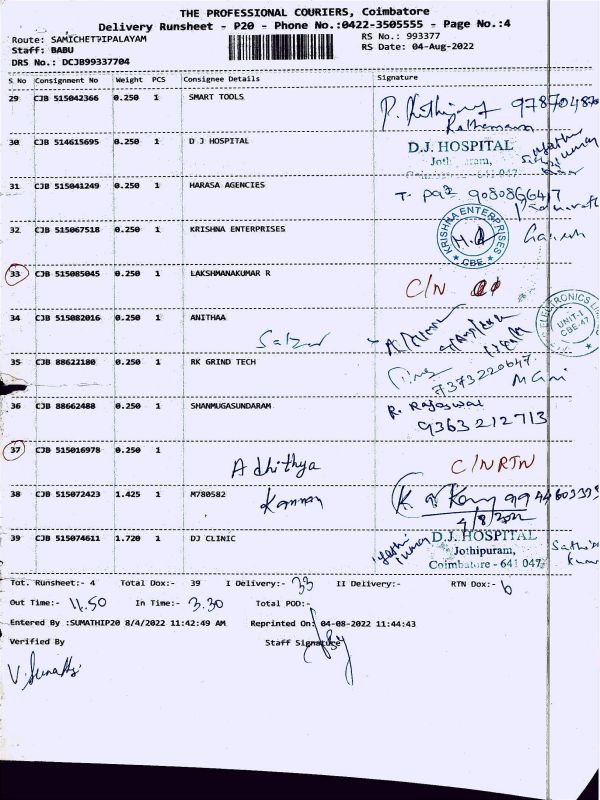 THE PROFESSIONAL COURIERS, Coimbatore
Delivery Runsheet - P20 - Phone No.:0422-3505555 - Page No.:4
Route: SAMICHETTIPALAYAM RS No.: 993377
Staff: BABU RS Date: 04-Aug-2022
DRS No.: DCJB99337704
S No Consignment No Weight PCS Consignee Details Signature
29 CJB 515042366 0.250 1 SMART TOOLS
30 CJB 514615695 0.250 1 D J HOSPITAL D.J. HOSPITAL
31 CJB 515041249 0.250 1 HARASA AGENCIES
32 CJB 515067518 0.250 1 KRISHNA ENTERPRISES KRISHNA ENTERPRISES CBE. Ganesh
33 CJB 515085045 0.250 1 LAKSHMANAKUMAR R C/N
34 CJB 515082016 0.250 1 ANITHAA
UNIT-I CBE-47
35 CJB 88622180 0.250 1 RK GRIND TECH 7373220647
36 CJB 88662488 0.250 1 SHANMUGASUNDARAM R. Rajeswari
9363212713
37 CJB 515016978 0.250 1 C/N RTN
Adhithya
38 CJB 515072423 1.425 1 M780582
Kannan
4/8/2022
39 CJB 515074611 1.720 1 DJ CLINIC D.J. HOSPITAL
Jothipuram,
Coimbatore - 641 047
Tot. Runsheet:- 4 Total Dox:- 39 I Delivery:- 33 II Delivery:- RTN Dox:- 6
Out Time:- 11.50 In Time:- 3.30 Total POD:-
Entered By :SUMATHIP20 8/4/2022 11:42:49 AM Reprinted On: 04-08-2022 11:44:43
Verified By Staff Signature
V. Sumathi